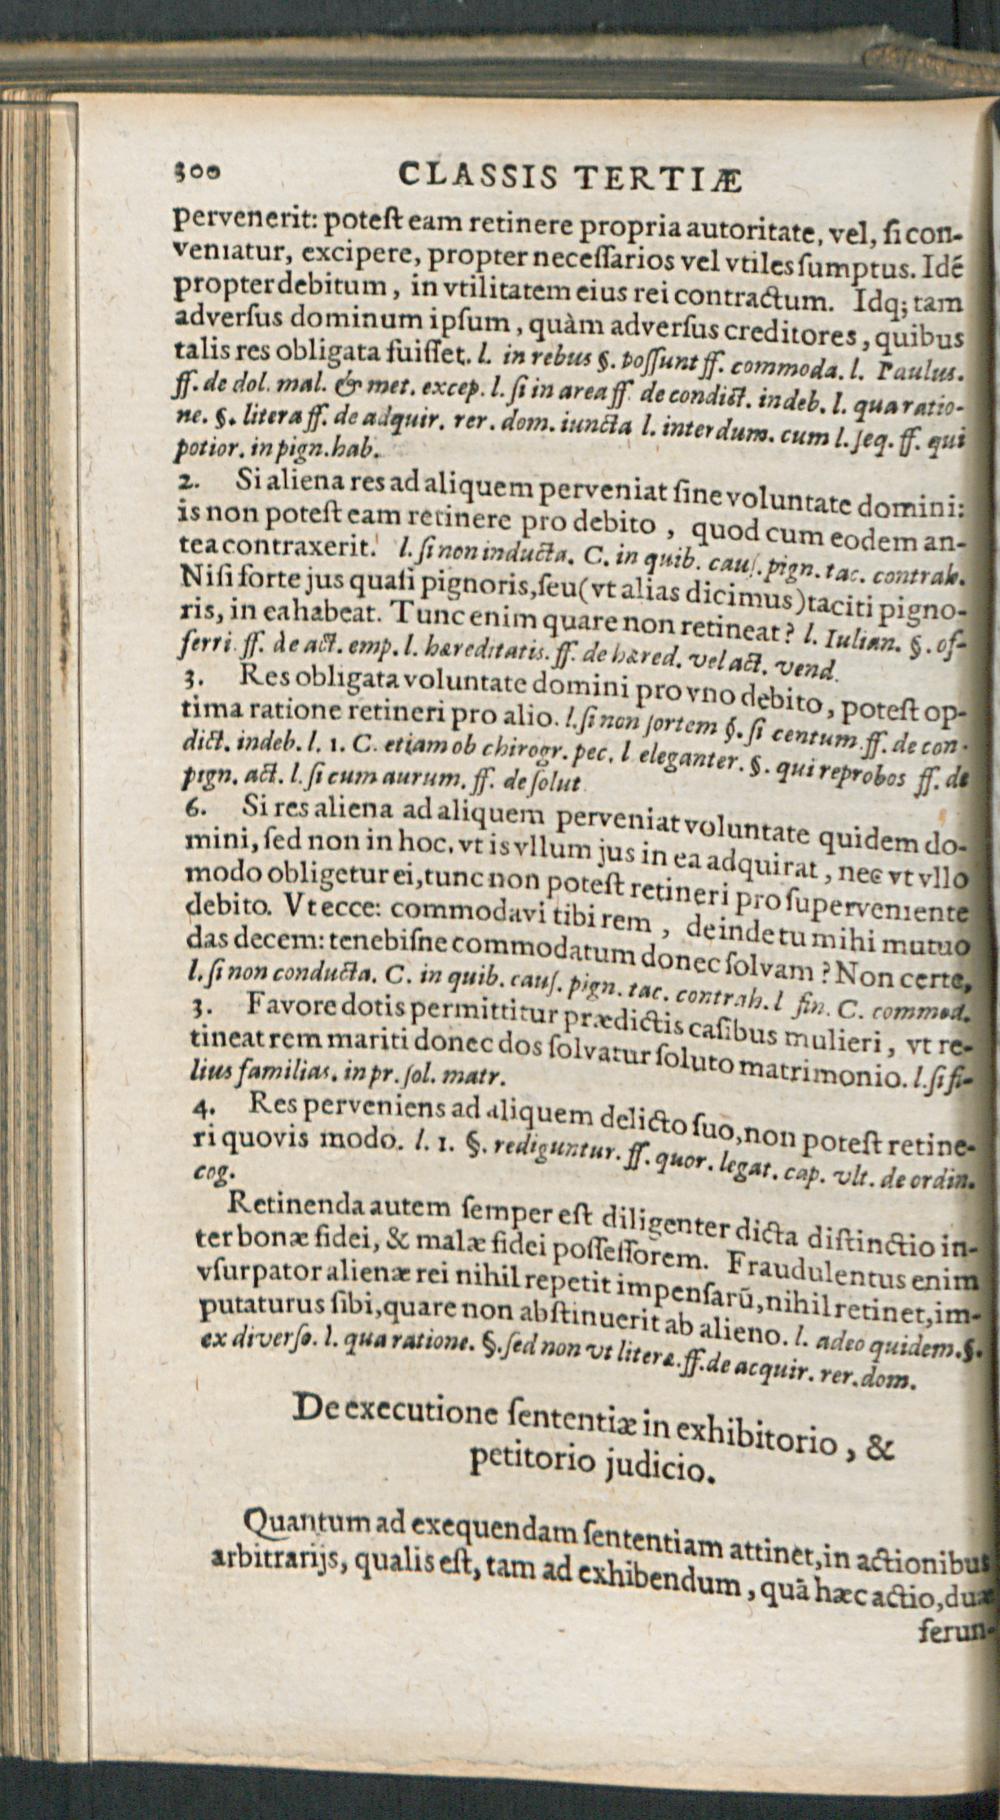 300 CLASSIS TERTIÆ
pervenerit: potest eam retinere propria autoritate, vel, si con-
veniatur, excipere, propter necessarios vel vtiles sumptus. Idē
propter debitum, in vtilitatem eius rei contractum. Idq; tam
adversus dominum ipsum, quàm adversus creditores, quibus
talis res obligata fuisset. l. in rebus §. possunt ff. commoda. l. Paulus.
ff. de dol. mal. & met. excep. l. si in area ff. de condict. indeb. l. qua ratio-
ne. §. litera ff. de adquir. rer. dom. iuncta l. interdum. cum l. seq. ff. qui
potior. in pign. hab.
2. Si aliena res ad aliquem perveniat sine voluntate domini:
is non potest eam retinere pro debito, quod cum eodem an-
tea contraxerit. l. si non inducta. C. in quib. caus. pign. tac. contrah.
Nisi forte jus quasi pignoris, seu (vt alias dicimus) taciti pigno-
ris, in ea habeat. Tunc enim quare non retineat? l. Iulian. §. of-
ferri. ff. de act. emp. l. hæreditatis. ff. de hæred. vel act. vend.
3. Res obligata voluntate domini pro vno debito, potest op-
tima ratione retineri pro alio. l. si non sortem §. si centum. ff. de con-
dict. indeb. l. 1. C. etiam ob chirogr. pec. l eleganter. §. qui reprobos ff. de
pign. act. l. si cum aurum. ff. de solut.
6. Si res aliena ad aliquem perveniat voluntate quidem do-
mini, sed non in hoc, vt is vllum jus in ea adquirat, nec vt vllo
modo obligetur ei, tunc non potest retineri pro superveniente
debito. Vt ecce: commodavi tibi rem, deinde tu mihi mutuo
das decem: tenebisne commodatum donec solvam? Non certe,
l. si non conducta. C. in quib. caus. pign. tac. contrah. l fin. C. commod.
3. Favore dotis permittitur prædictis casibus mulieri, vt re-
tineat rem mariti donec dos solvatur soluto matrimonio. l. si fi-
lius familias. in pr. sol. matr.
4. Res perveniens ad aliquem delicto suo, non potest retine-
ri quovis modo. l. 1. §. rediguntur. ff. quor. legat. cap. vlt. de ordin.
cog.
Retinenda autem semper est diligenter dicta distinctio in-
ter bonæ fidei, & malæ fidei possessorem. Fraudulentus enim
vsurpator alienæ rei nihil repetit impensarū, nihil retinet, im-
putaturus sibi, quare non abstinuerit ab alieno. l. adeo quidem. §.
ex diverso. l. qua ratione. §. sed non vt literæ. ff. de acquir. rer. dom.
De executione sententiæ in exhibitorio, &
petitorio judicio.
Quantum ad exequendam sententiam attinet, in actionibus
arbitrarijs, qualis est, tam ad exhibendum, quā hæc actio, duæ
ferun-